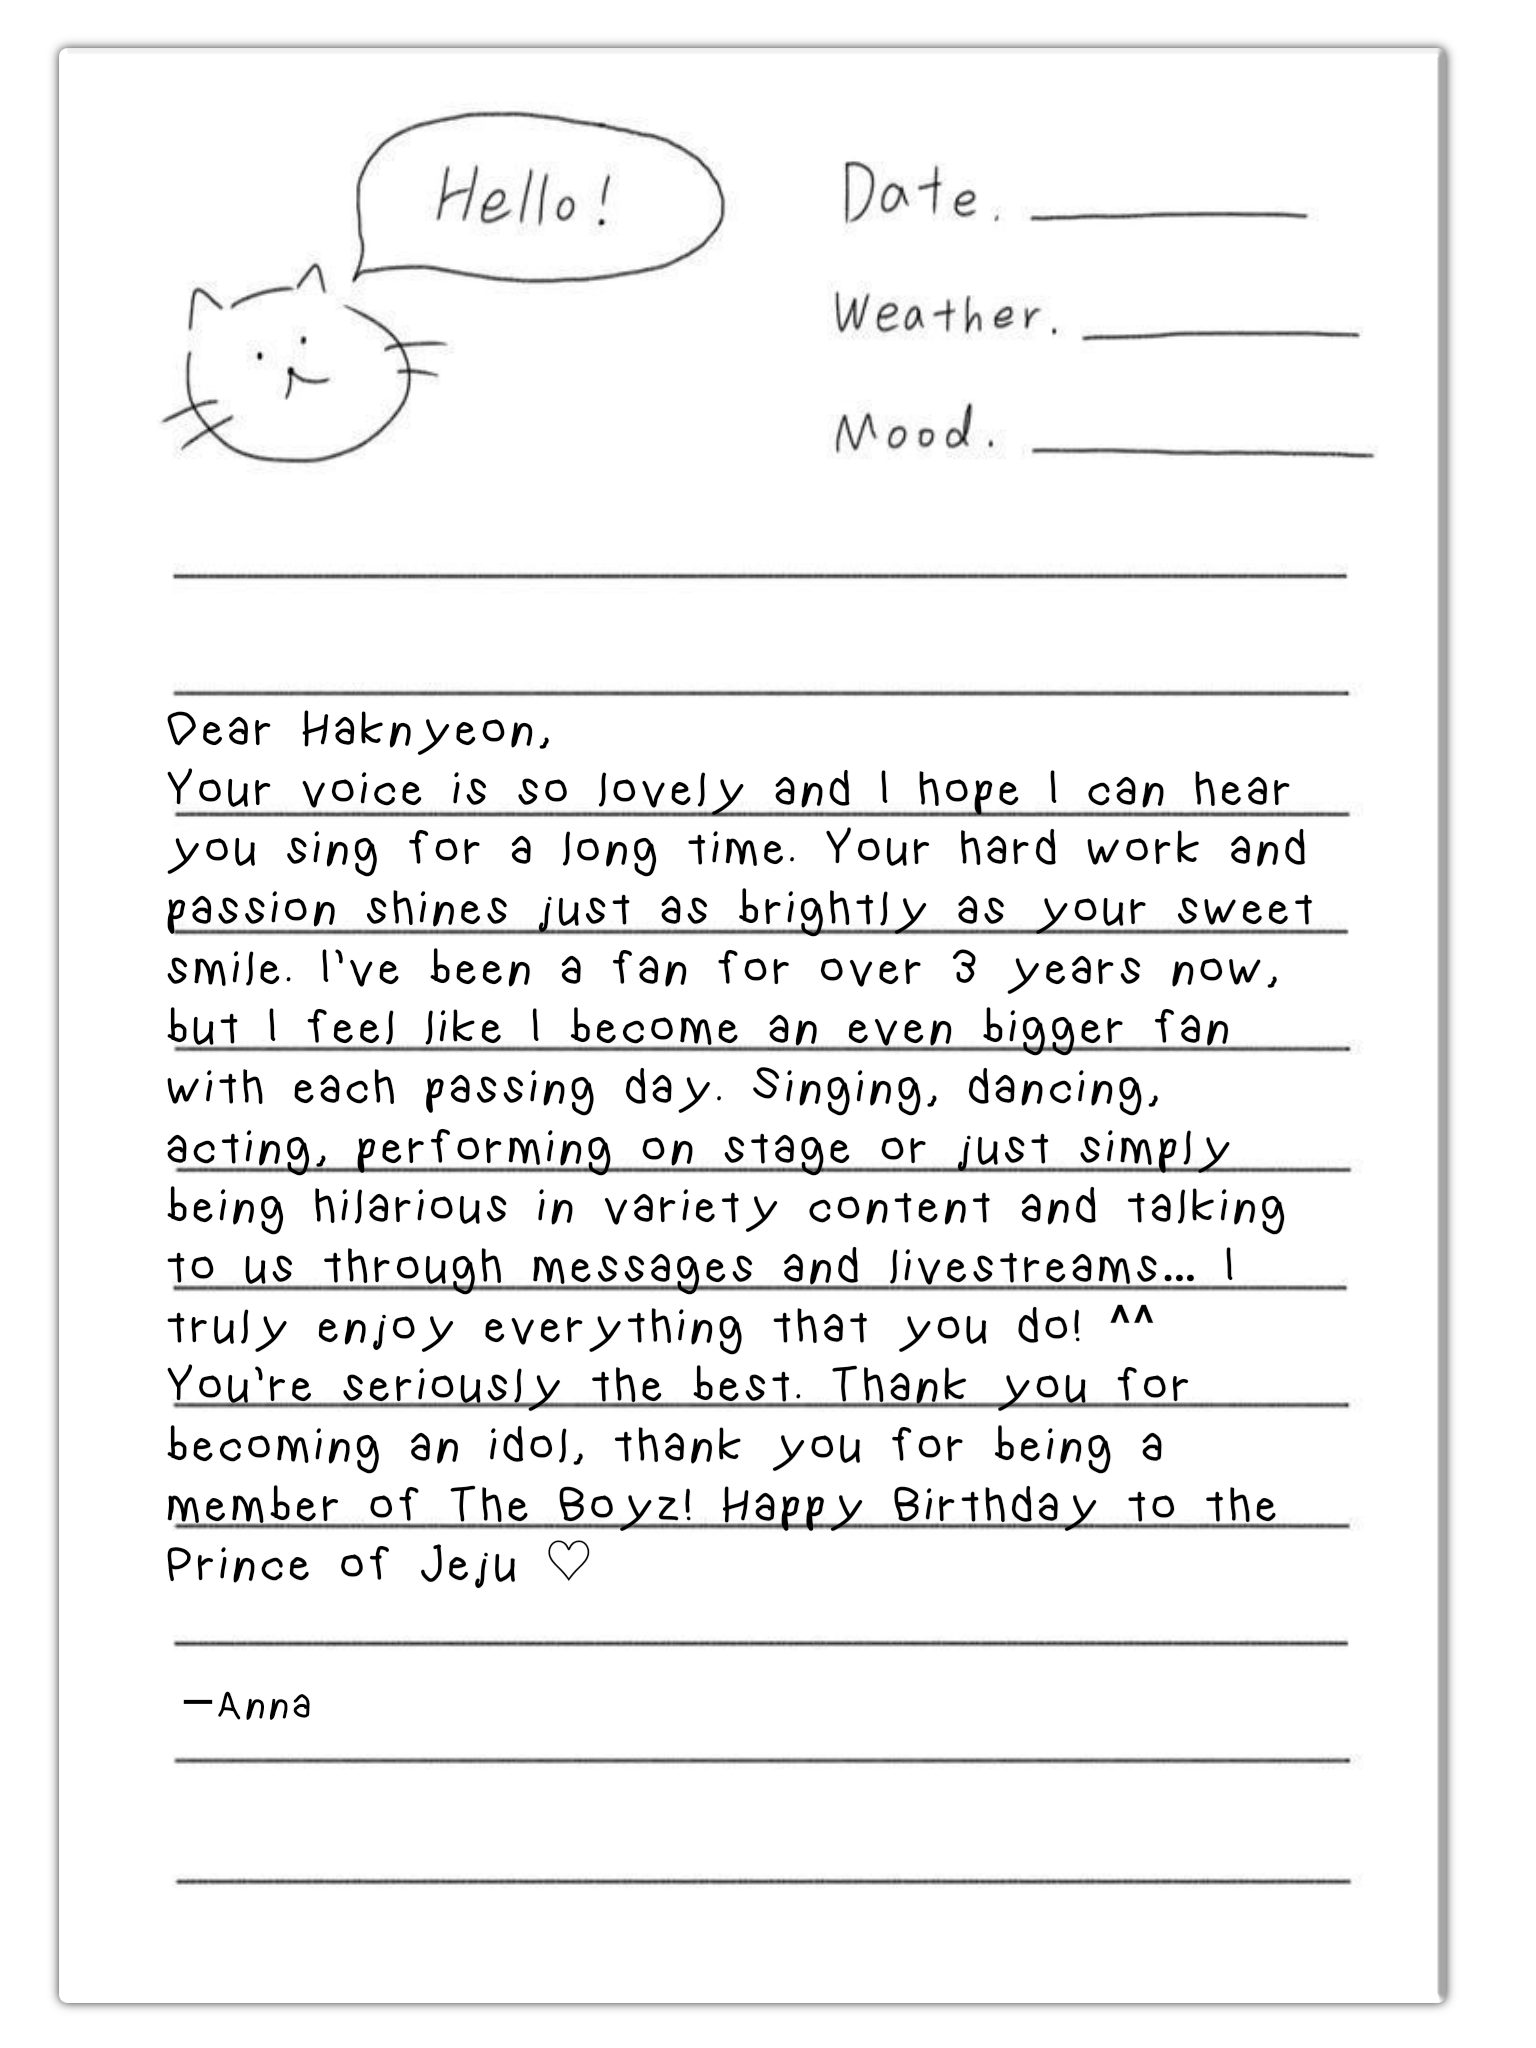 Hello!
Date.
Weather.
Mood.
Dear Haknyeon,
Your voice is so lovely and I hope I can hear
you sing for a long time. Your hard work and
passion shines just as brightly as your sweet
smile. I've been a fan for over 3 years now,
but I feel like I become an even bigger fan
with each passing day. Singing, dancing,
acting, performing on stage or just simply
being hilarious in variety content and talking
to us through messages and livestreams... I
truly enjoy everything that you do! ^^
You're seriously the best. Thank you for
becoming an idol, thank you for being a
member of The Boyz! Happy Birthday to the
Prince of Jeju ♡
—Anna